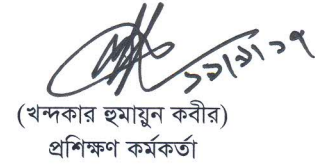 ১১/১/১৭
(খন্দকার হুমায়ুন কবীর)
প্রশিক্ষণ কর্মকর্তা